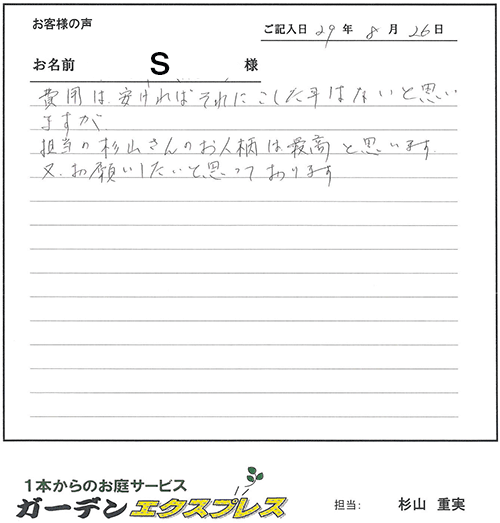 お客様の声
ご記入日 29 年 8 月 26 日
お名前 S 様
費用は安ければそれにこした事はないと思い
ますが
担当の杉山さんのお人柄は最高と思います.
又、お願いしたいと思っております
1本からのお庭サービス
ガーデンエクスプレス
担当: 杉山 重実